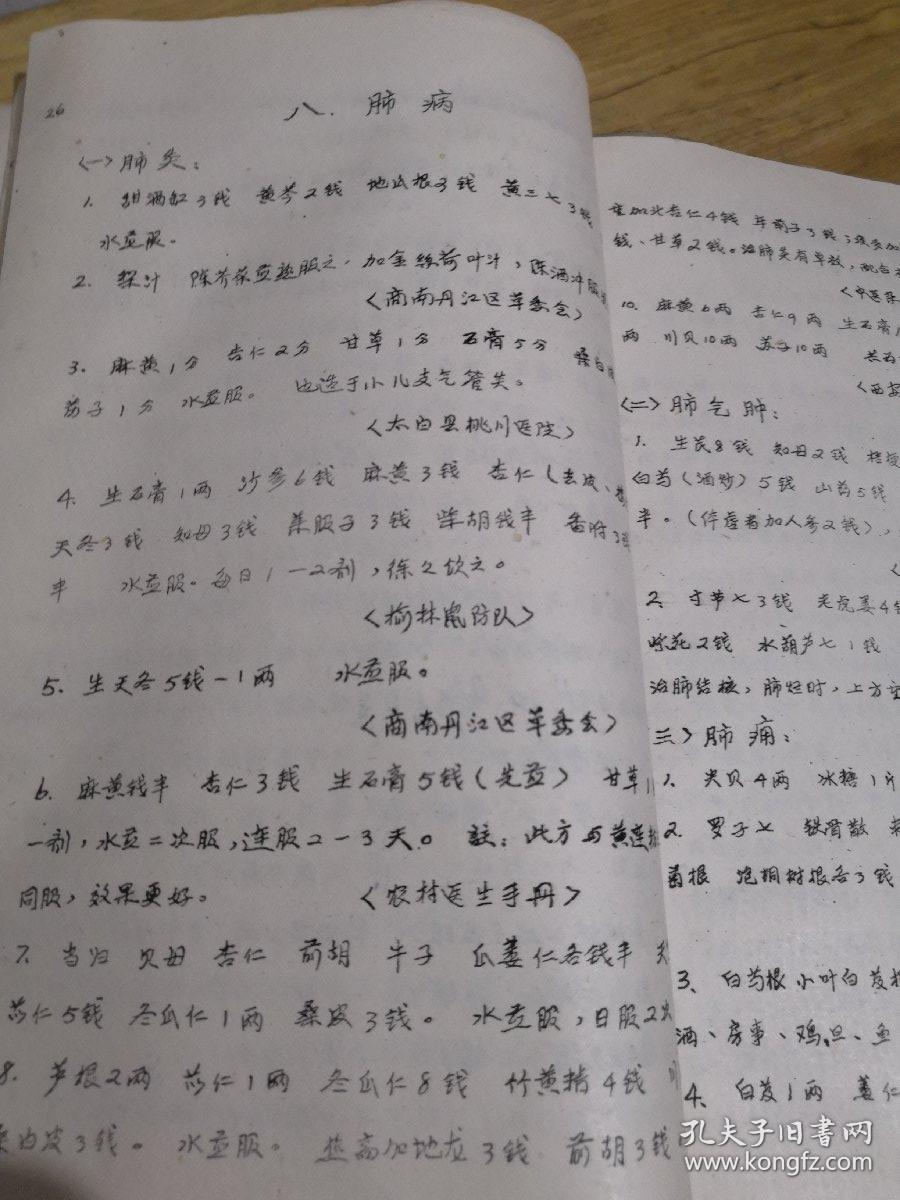 26
八. 肺病
<一>肺炎:
1. 甜酒缸3钱 黄芩2钱 地瓜根3钱 黄三七3钱
水煎服。
2. 陈芥菜煎热服之. 加金丝荷叶汁, 陈酒冲服
<商南丹江区革委会>
3. 麻黄1分 杏仁2分 甘草1分 石膏5分 桑白
苏子1分 水煎服。 也适于小儿支气管炎。
<太白县桃川医院>
4. 生石膏1两 沙参6钱 麻黄3钱 杏仁(去皮、
天冬3钱 知母3钱 莱服子3钱 柴胡钱半 香附3钱
半 水煎服。每日1—2剂,徐之饮之。
<榆林鼠防队>
5. 生天冬5钱—1两 水煎服。
<商南丹江区革委会>
6. 麻黄钱半 杏仁3钱 生石膏5钱(先煎) 甘草1
一剂,水煎二次服,连服2—3天。 註: 此方与黄连
同服,效果更好。 <农村医生手册>
7. 当归 贝母 杏仁 前胡 牛子 瓜蒌仁各钱半
苡仁5钱 冬瓜仁1两 桑皮3钱。 水煎服,日服2次
8. 芦根2两 苡仁1两 冬瓜仁8钱 竹黄精4钱 川
桑白皮3钱。 水煎服。 热高加地龙3钱 前胡3钱
重加北杏仁4钱 苏子3钱;痰多加
钱、甘草2钱。治肺炎有卓效,配合
<中医
10. 麻黄6两 杏仁9两 生石膏
两 川贝10两 苏子10两
<西安
<二>肺气肿:
1. 生芪8钱 知母2钱 桔梗
白芍(酒炒)5钱 山药5钱
半。(体虚者加人参2钱),
2. 寸节七3钱 老虎姜4钱
花2钱 水葫芦七1钱
治肺结核,肺烂时,上方
三>肺痈:
1. 尖贝4两 冰糖1斤
2. 罗子七 铁骨散
菌根 泡桐树根各3钱
3、 白芍根 小叶白芨根
酒、房事、鸡、旦、鱼
4、 白芨1两 蒌仁
孔夫子旧书网
www.kongfz.com